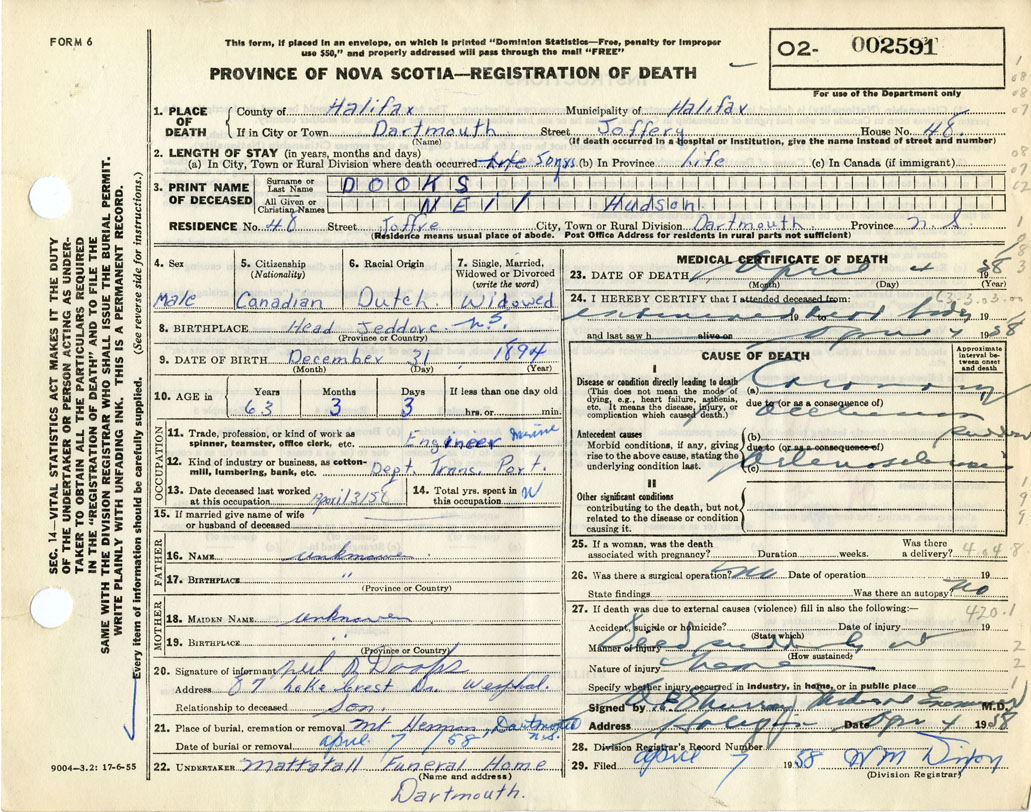 FORM 6
This form, if placed in an envelope, on which is printed "Dominion Statistics—Free, penalty for improper
use $50," and properly addressed will pass through the mail "FREE"
PROVINCE OF NOVA SCOTIA—REGISTRATION OF DEATH
02- 002591
For use of the Department only
1. PLACE OF DEATH
County of Halifax Municipality of Halifax
If in City or Town Dartmouth Street Joffery House No. 48.
(Name) (If death occurred in a Hospital or Institution, give the name instead of street and number)
2. LENGTH OF STAY (in years, months and days)
(a) In City, Town or Rural Division where death occurred Life 50 yrs (b) In Province Life (c) In Canada (if immigrant)
3. PRINT NAME OF DECEASED
Surname or Last Name DOOKS
All Given or Christian Names NEIl Hudson
RESIDENCE No. 48 Street Joffre City, Town or Rural Division Dartmouth Province N.S
(Residence means usual place of abode. Post Office Address for residents in rural parts not sufficient)
4. Sex
Male
5. Citizenship
(Nationality)
Canadian
6. Racial Origin
Dutch
7. Single, Married,
Widowed or Divorced
(write the word)
Widowed
8. BIRTHPLACE Head Jeddore N.S.
(Province or Country)
9. DATE OF BIRTH December 31 1894
(Month) (Day) (Year)
10. AGE in
Years Months Days If less than one day old
63 3 3 hrs. or min.
OCCUPATION
11. Trade, profession, or kind of work as
spinner, teamster, office clerk, etc. Engineer Marine
12. Kind of industry or business, as cotton-
mill, lumbering, bank, etc. Dept. Trans. Port.
13. Date deceased last worked
at this occupation April 3/58
14. Total yrs. spent in
this occupation
15. If married give name of wife
or husband of deceased
FATHER
16. NAME unknown
17. BIRTHPLACE "
(Province or Country)
MOTHER
18. MAIDEN NAME unknown
19. BIRTHPLACE "
(Province or Country)
20. Signature of informant Neil D Dooks
Address 87 Lake Crest Dr. Westphal.
Relationship to deceased Son.
21. Place of burial, cremation or removal Mt Hermon, Dartmouth N.S.
Date of burial or removal April 7/58
22. UNDERTAKER Mattatall Funeral Home
(Name and address)
Dartmouth.
MEDICAL CERTIFICATE OF DEATH
23. DATE OF DEATH April 4 58
(Month) (Day) (Year)
24. I HEREBY CERTIFY that I attended deceased from:
63.3.03.00
examined dead body
19 to 19
and last saw h alive on April 4 1958
CAUSE OF DEATH
Approximate interval between onset and death
I
Disease or condition directly leading to death
(This does not mean the mode of
dying, e.g., heart failure, asthenia,
etc. It means the disease, injury, or
complication which caused death.)
(a) Coronary
due to (or as a consequence of)
occlusion
Antecedent causes
Morbid conditions, if any, giving
rise to the above cause, stating the
underlying condition last.
(b) sudden
due to (or as a consequence of)
(c) Arteriosclerosis
II
Other significant conditions
contributing to the death, but not
related to the disease or condition
causing it.
25. If a woman, was the death
associated with pregnancy? Duration weeks. Was there
a delivery? 4.04.8
26. Was there a surgical operation? no Date of operation 19
State findings Was there an autopsy? no
27. If death was due to external causes (violence) fill in also the following:— 420.1
Accident, suicide or homicide? Date of injury 19
(State which)
Manner of injury Died suddenly at
(How sustained)
Nature of injury home
Specify whether injury occurred in industry, in home, or in public place
Signed by Medical Examiner M.D.
Address Halifax Date Apr 4 1958
28. Division Registrar's Record Number
29. Filed April 7 1958 WM Dixon
(Division Registrar)
SEC. 14—VITAL STATISTICS ACT MAKES IT THE DUTY
OF THE UNDERTAKER OR PERSON ACTING AS UNDER-
TAKER TO OBTAIN ALL THE PARTICULARS REQUIRED
IN THE "REGISTRATION OF DEATH" AND TO FILE THE
SAME WITH THE DIVISION REGISTRAR WHO SHALL ISSUE THE BURIAL PERMIT.
WRITE PLAINLY WITH UNFADING INK. THIS IS A PERMANENT RECORD.
Every item of information should be carefully supplied. (See reverse side for instructions.)
9004—3.2: 17-6-55